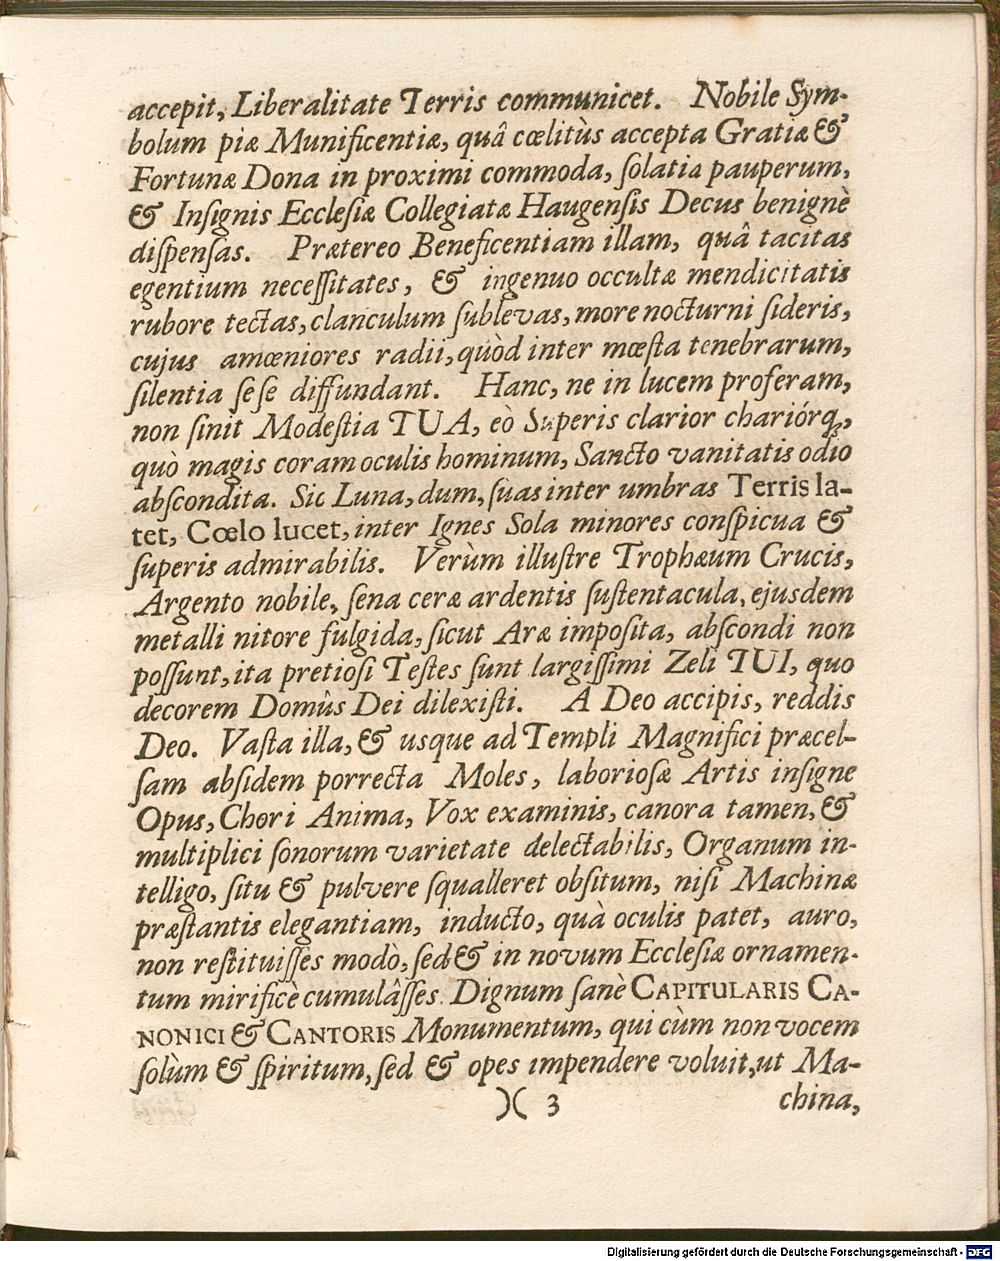 accepit, Liberalitate Terris communicet. Nobile Sym-
bolum piæ Munificentiæ, quâ cœlitùs accepta Gratiæ &
Fortunæ Dona in proximi commoda, ſolatia pauperum,
& Inſignis Eccleſiæ Collegiatæ Haugenſis Decus benignè
diſpenſas. Prætereo Beneficentiam illam, quâ tacitas
egentium neceſſitates, & ingenuo occultæ mendicitatis
rubore tectas, clanculum ſublevas, more nocturni ſideris,
cujus amœniores radii, quòd inter mœſta tenebrarum,
ſilentia ſeſe diffundant. Hanc, ne in lucem proferam,
non ſinit Modeſtia TUA, eò Superis clarior chariórq;,
quò magis coram oculis hominum, Sancto vanitatis odio
abſcondita. Sic Luna, dum, ſuas inter umbras Terris la-
tet, Cœlo lucet, inter Ignes Sola minores conſpicua &
ſuperis admirabilis. Verùm illuſtre Trophæum Crucis,
Argento nobile, ſena ceræ ardentis ſuſtentacula, ejusdem
metalli nitore fulgida, ſicut Aræ impoſita, abſcondi non
poſſunt, ita pretioſi Teſtes ſunt largiſſimi Zeli TUI, quo
decorem Domûs Dei dilexiſti. A Deo accipis, reddis
Deo. Vaſta illa, & usque ad Templi Magnifici præcel-
ſam abſidem porrecta Moles, laborioſæ Artis inſigne
Opus, Chori Anima, Vox examinis, canora tamen, &
multiplici ſonorum varietate delectabilis, Organum in-
telligo, ſitu & pulvere ſqualleret obſitum, niſi Machinæ
præſtantis elegantiam, inducto, quà oculis patet, auro,
non reſtituiſſes modò, ſed & in novum Eccleſiæ ornamen-
tum mirificè cumulâſſes. Dignum ſanè CAPITULARIS CA-
NONICI & CANTORIS Monumentum, qui cùm non vocem
ſolùm & ſpiritum, ſed & opes impendere voluit, ut Ma-
)( 3 china,
Digitalisierung gefördert durch die Deutsche Forschungsgemeinschaft - DFG